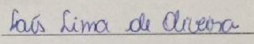 Laís Lima de Oliveira